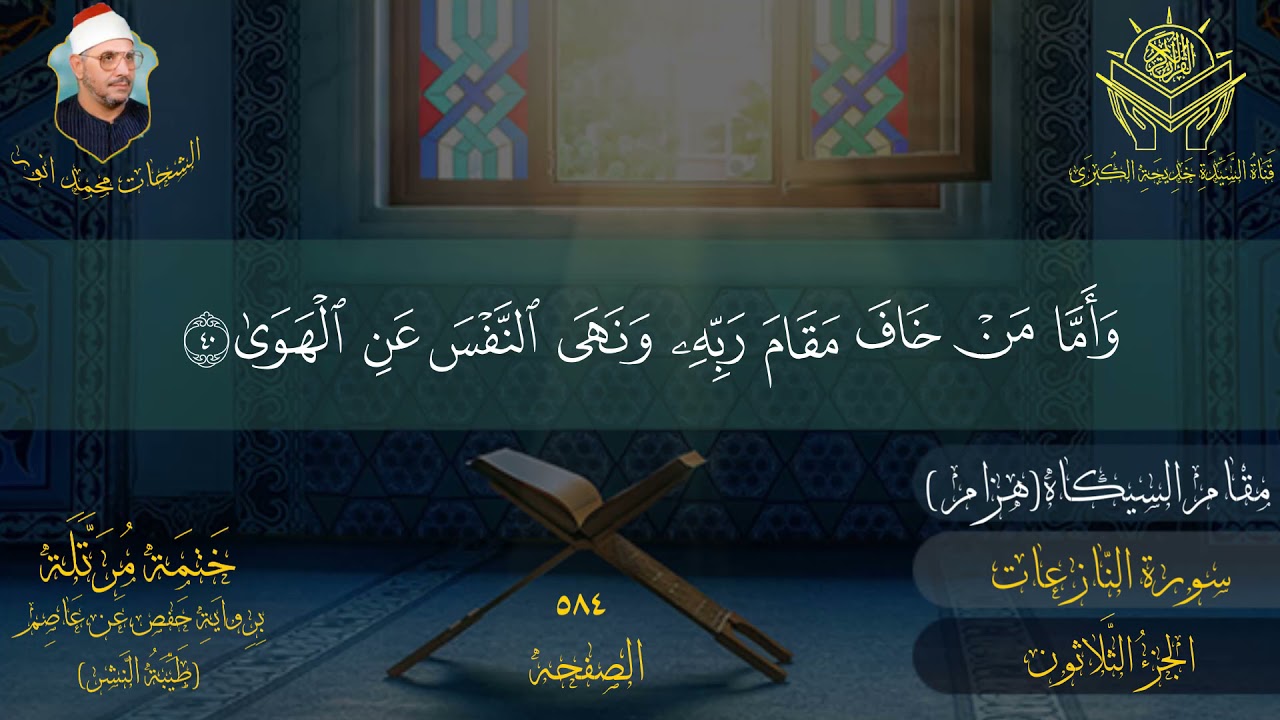 القرآن الكريم
قَنَاةُ السَّيِّدَةِ خَدِيجَةِ الكُبْرَى
الشحات محمد انور
وَأَمَّا مَنۡ خَافَ مَقَامَ رَبِّهِۦ وَنَهَى ٱلنَّفۡسَ عَنِ ٱلۡهَوَىٰ ٤٠
مقام السيكاه (هزام)
سورة النَّازعات
الجزءُ الثَّلاثون
خَتمَة مُرَتَّلَة
بِروايَةِ حَفص عَن عَاصِم
(طَيِّبَةُ النَّشر)
٥٨٤
الصفحه